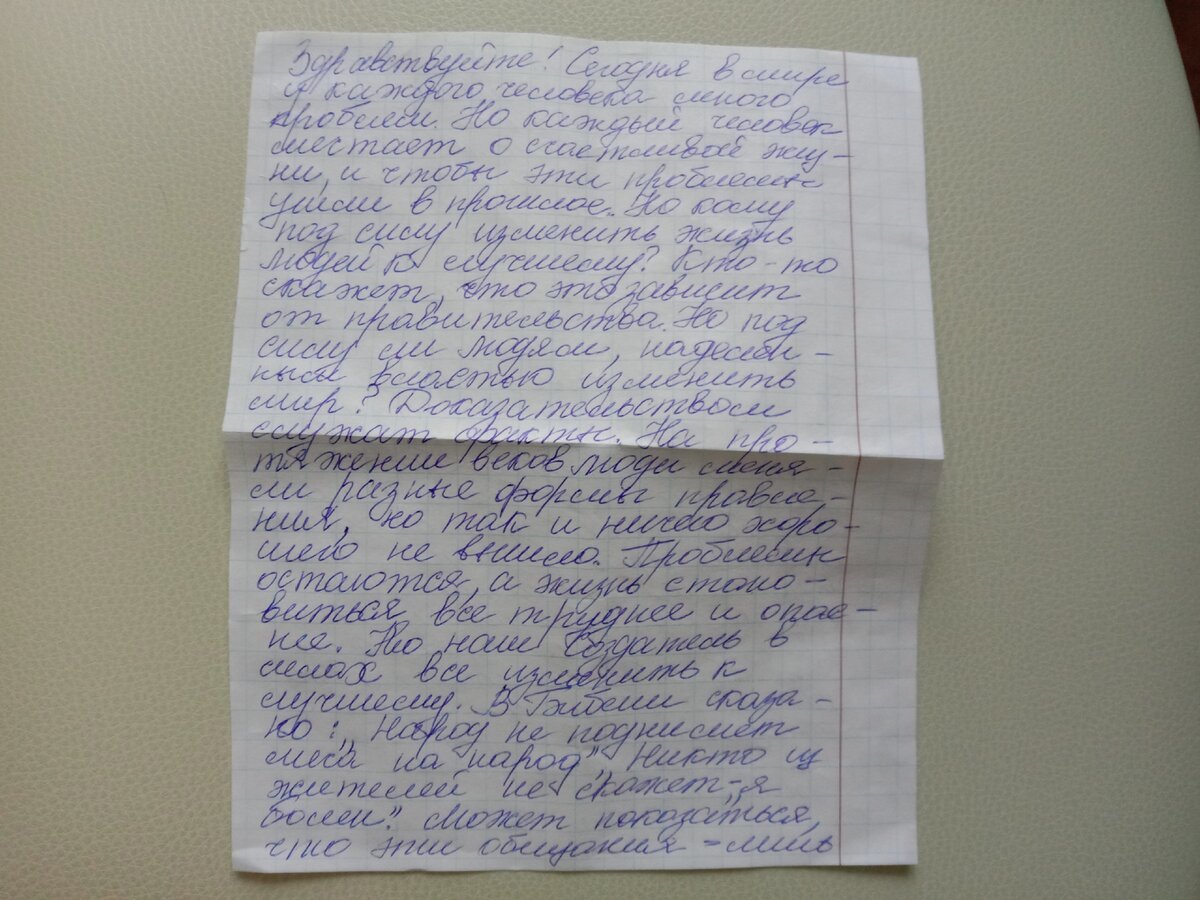 Здравствуйте! Сегодня в мире
и каждого человека много
проблем. Но каждый человек
мечтает о счастливой жиз-
ни, и чтобы эти проблемы
ушли в прошлое. Но кому
под силу изменить жизнь
людей к лучшему? Кто-то
скажет, что это зависит
от правительства. Но под
силу ли людям, наделён-
ным властью изменить
мир? Доказательством
служат факты. На про-
тяжении веков люди меня-
ли разные формы правле-
ния, но так и ничего хоро-
шего не вышло. Проблемы
остаются, а жизнь стано-
виться все труднее и опас-
нее. Но наш Создатель в
силах все изменить к
лучшему. В Библии сказа-
но: „Народ не поднимет
меча на народ", „Никто из
жителей не скажет-„я
болен". Может показаться,
что эти обещания - лишь